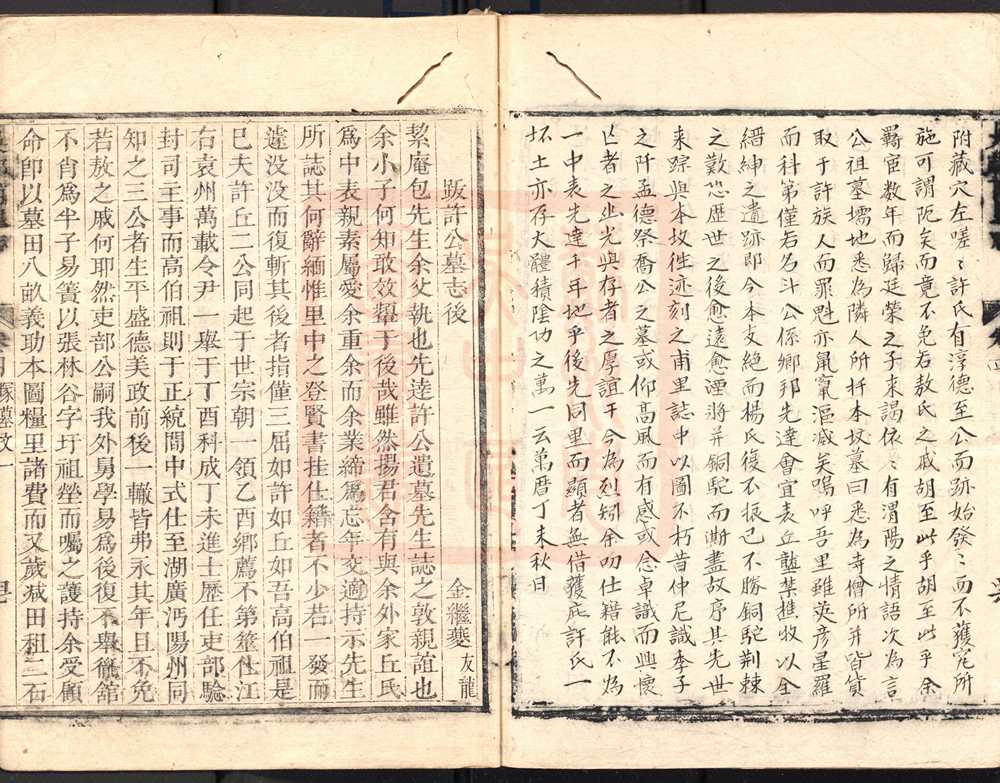 附藏穴左嗟嗟許氏有淳德至公而跡始發發而不獲冤所
施可謂阨矣而竟不免若敖氏之戚胡至此乎胡至此乎余
羈宦數年而歸廷榮之子來謁依依有渭陽之情語次為言
公祖墓壖地悉為隣人所扞本墳墓曰悉為寺僧所并皆貨
取于許族人而罪魁亦氣竄漚滅矣嗚呼吾里雖英彦星羅
而科第僅若名斗公係鄉邦先達會宜表丘壟禁樵收以全
縉紳之遺跡即今本支絶而楊氏復不振已不勝銅駝荆棘
之歎恐歷世之後愈遠愈湮將并銅駝而澌盡故序其先世
来踪與本坟徃迹刻之甫里誌中以圖不朽昔仲尼識季子
之阡孟德祭喬公之墓或仰髙風而有感或念卓識而興懷
亾者之幽光與存者之厚誼千今為烈矧余叨仕籍能不為
一中表先達千年地乎後先同里而顯者無借獲庇許氏一
抔土亦存大體積陰功之萬一云萬暦丁未秋日
跋許公墓志後
金繼夔友龍
絜庵包先生余父執也先逵許公遺墓先生誌之敦親誼也
余小子何知敢效顰于後哉雖然揚君含有與余外家丘氏
為中表親素屬愛余重余而余業締為忘年交適持示先生
所誌其何辭緬惟里中之登賢書挂仕籍者不少若一發而
遽没没而復斬其後者指僂三屈如許如丘如吾高伯祖是
巳夫許丘二公同起于世宗朝一領乙酉鄉薦不第筮仕江
右袁州萬載令尹一舉于丁酉科成丁未進士歷任吏部驗
封司主事而高伯祖則于正統間中式仕至湖廣沔陽州同
知之三公者生平盛德美政前後一轍皆弗永其年且不免
若敖之戚何耶然吏部公嗣我外舅學易為後復不舉徹舘
不肖為半子易簀以張林谷字圩祖塋而囑之護持余受顧
命卽以墓田八畝義助本圖糧里諸費而又歲減田租三石